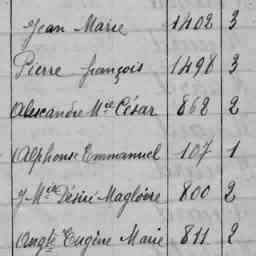 Jean Marie 1402 3
Pierre françois 1498 3
Alexandre Mie César 862 2
Alphonse Emmanuel 107 1
J Mie Désiré Magloire 800 2
Augte Eugène Marie 811 2